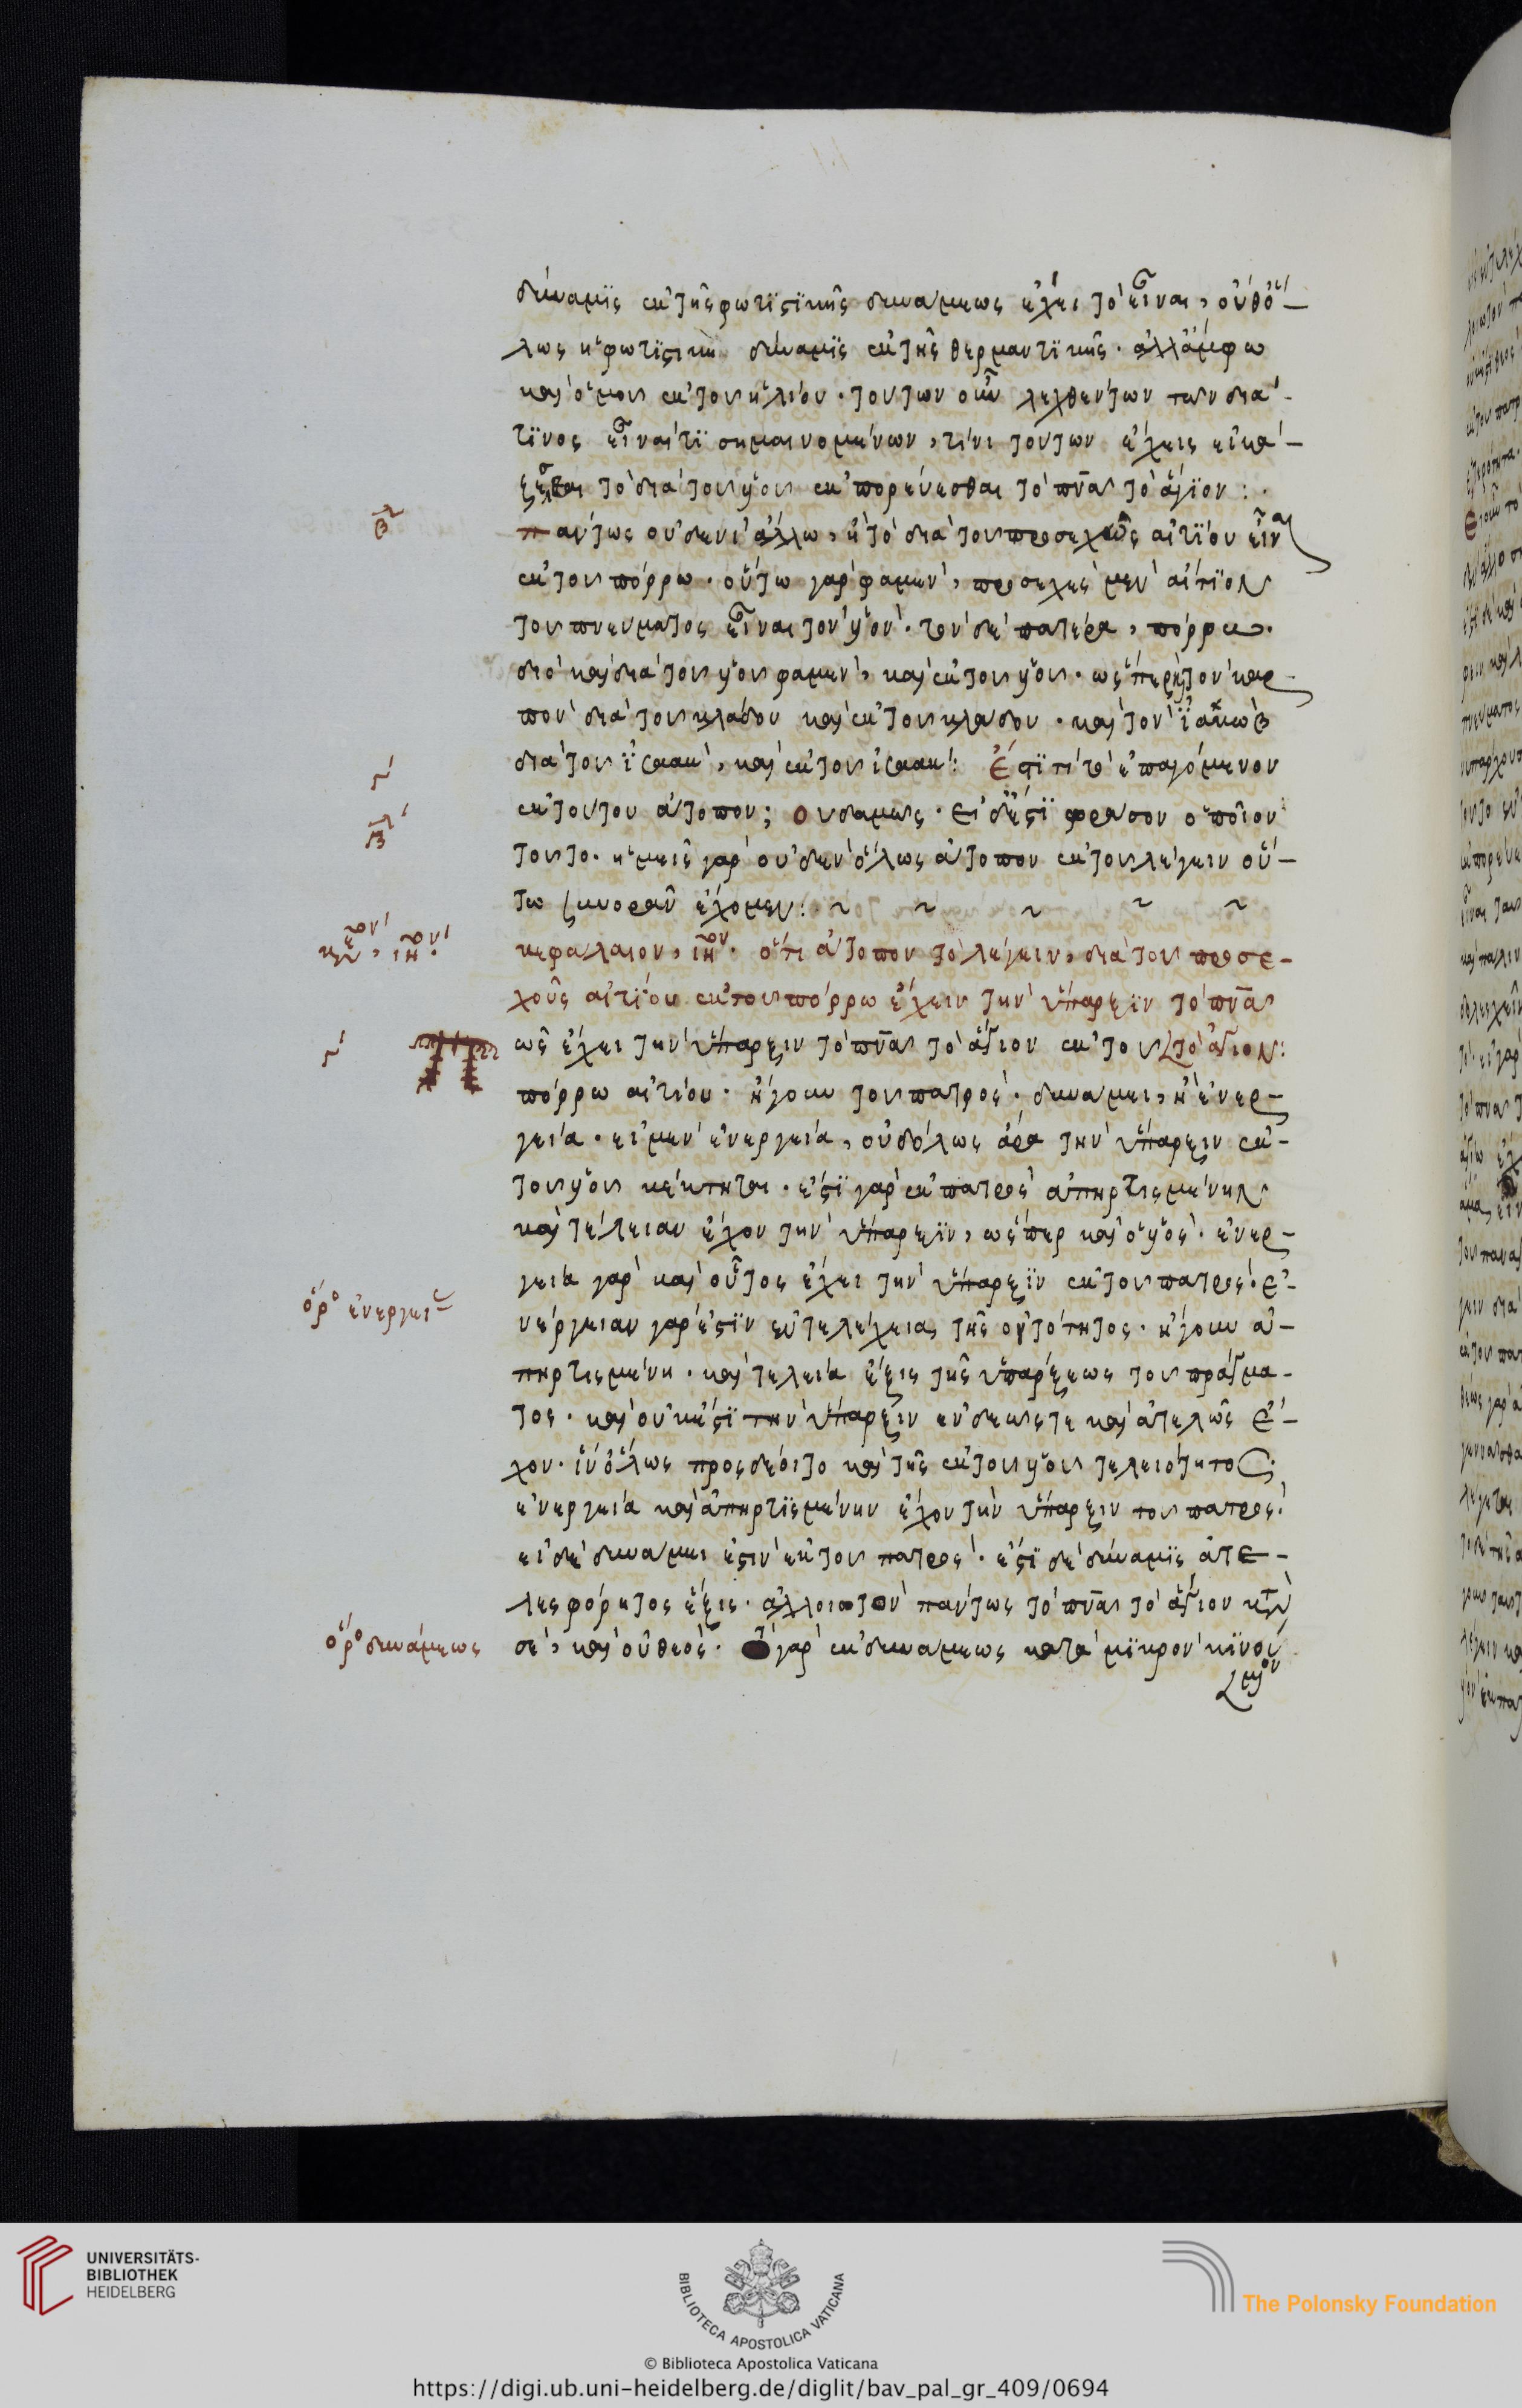 δύναμϊς ἐκ τῆς φωτϊστϊκῆς δυνάμεως ἔχει τὸ εἶναι, οὔθ' ὅ-
λως ἡ φωτϊστικὴ δύναμϊς ἐκ τῆς θερμαντϊκῆς. ἀλλ' ἄμφω
καὶ ὁμοῦ ἐκ τοῦ ἡλίου. τούτων οὖν λεχθέντων τῶν διά
τϊνος εἶναί τϊ σημαινομένων, τίνι τούτων ἔχεις εἰκά-
τὸ διὰ τοῦ υἱοῦ ἐκπορεύεσθαι τὸ πνα τὸ ἅγϊον:
β
πάντως οὐδενὶ ἄλλω, ἢ τὸ διὰ τοῦ προσεχῶς αἰτίου εἶν
ἐκ τοῦ πόρρω. οὕτω γάρ φαμεν, προσεχὲς μὲν αἴτϊον
τοῦ πνεύματος εἶναι τὸν υἱόν. τὸν δὲ πατέρα, πόρρω.
διὸ καὶ διὰ τοῦ υἱοῦ φαμὲν, καὶ ἐκ τοῦ υἱοῦ. ὥσπερ τὸν καρ
πὸν διὰ τοῦ κλάδου καὶ ἐκ τοῦ κλάδου. καὶ τὸν ϊακὼβ
διὰ τοῦ ϊσαὰκ, καὶ ἐκ τοῦ ἰσαάκ: ἔστϊ τί τὸ ἐπαγόμενον
ἐκ τούτου ἄτοπον; οὐδαμῶς. εἰ δ' ἔστϊ φράσον ὁποῖον
τοῦτο. ἡμεῖς γὰρ οὐδὲν ὅλως ἄτοπον ἐκ τοῦ λέγειν οὕ-
τω συνορᾶν ἔχομεν: ~ ~ ~ ~ ~
κεφάλαιον, ιη ον. ὅτι ἄτοπον τὸ λέγειν, διὰ τοῦ προσε-
χοῦς αἰτίου ἐκ τοῦ πόρρω ἔχειν τὴν ὕπαρξϊν τὸ πνα
τὸ ἅγιον:
ὡς ἔχει τὴν ὕπαρξιν τὸ πνα τὸ ἅγιον ἐκ τοῦ
πόρρω αἰτίου. ἤγουν τοῦ πατρός. δυνάμει, ἢ ἐνερ-
γεία. εἰ μὲν ἐνεργεία, οὐδόλως ἄρα τὴν ὕπαρξιν ἐκ
τοῦ υἱοῦ κέκτηται. ἔστϊ γὰρ ἐκ πατρὸς ἀπηρτισμένην
καὶ τέλειαν ἔχον τὴν ὕπαρξϊν, ὥσπερ καὶ ὁ υἱός. ἐνερ-
γεία γὰρ καὶ οὗτος ἔχει τὴν ὕπαρξϊν ἐκ τοῦ πατρός. ἐ-
ὅρο ἐνεργεί
νέργειαν γάρ ἐστϊν ἐντελέχεια, τῆς ὀντότητος. ἤγουν ἀ-
πηρτισμένη. καὶ τελεία ἕξις τῆς ὑπάρξεως τοῦ πράγμα-
τος. καὶ οὐκ ἔστϊ τὴν ὕπαρξιν ἐνδεῶς τε καὶ ἀτελῶς ἔ-
χον. ἵν' ὅλως προσδέοιτο καὶ τῆς ἐκ τοῦ υἱοῦ τελειότητος.
ἐνεργεία καὶ ἀπηρτϊσμένην ἔχον τὴν ὕπαρξιν τοῦ πατρός.
εἰ δὲ δυνάμει ἐστὶν ἐκ τοῦ πατρός. ἔστϊ δὲ δύναμϊς ἀτε-
λεσφόρητος ἕξις. ἀλλοιωτὸν πάντως τὸ πνα τὸ ἅγιον
ὅρο δυνάμεως
σὲ, καὶ οὐ θεός. γὰρ ἐκ δυνάμεως κατὰ μϊκρὸν κϊνού
μενον
UNIVERSITÄTS-
BIBLIOTHEK
HEIDELBERG
BIBLIOTECA APOSTOLICA VATICANA
The Polonsky Foundation
© Biblioteca Apostolica Vaticana
https://digi.ub.uni-heidelberg.de/diglit/bav_pal_gr_409/0694